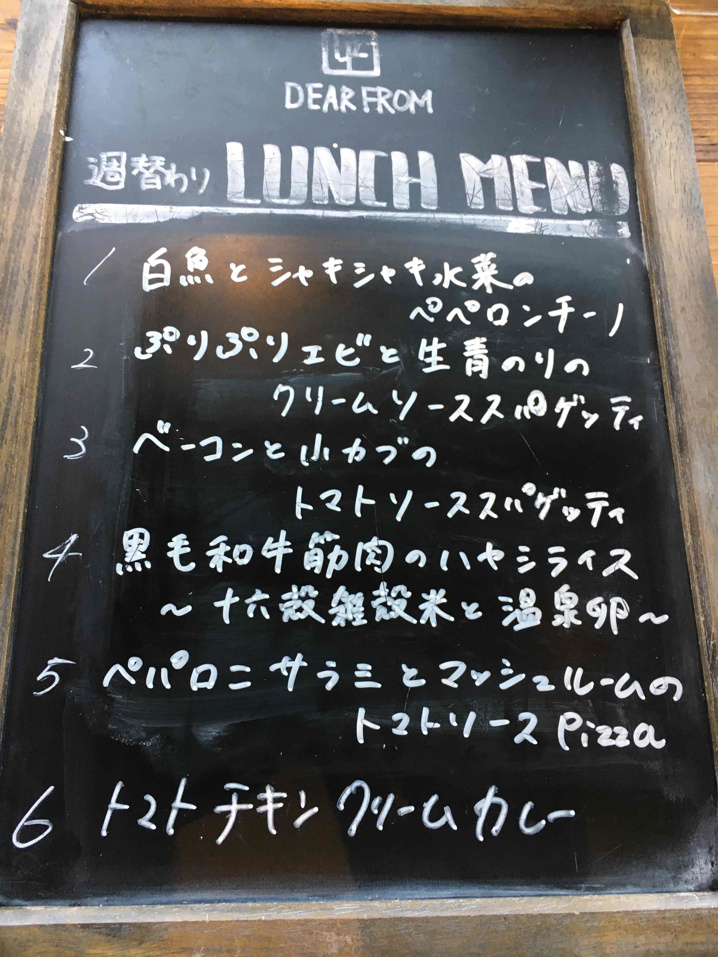 DEAR FROM
週替わり LUNCH MENU
1 白魚とシャキシャキ水菜の
ペペロンチーノ
2 ぷりぷりエビと生青のりの
クリームソーススパゲッティ
3 ベーコンと小カブの
トマトソーススパゲッティ
4 黒毛和牛筋肉のハヤシライス
～十六穀雑穀米と温泉卵～
5 ペパロニサラミとマッシュルームの
トマトソース Pizza
6 トマトチキンクリームカレー